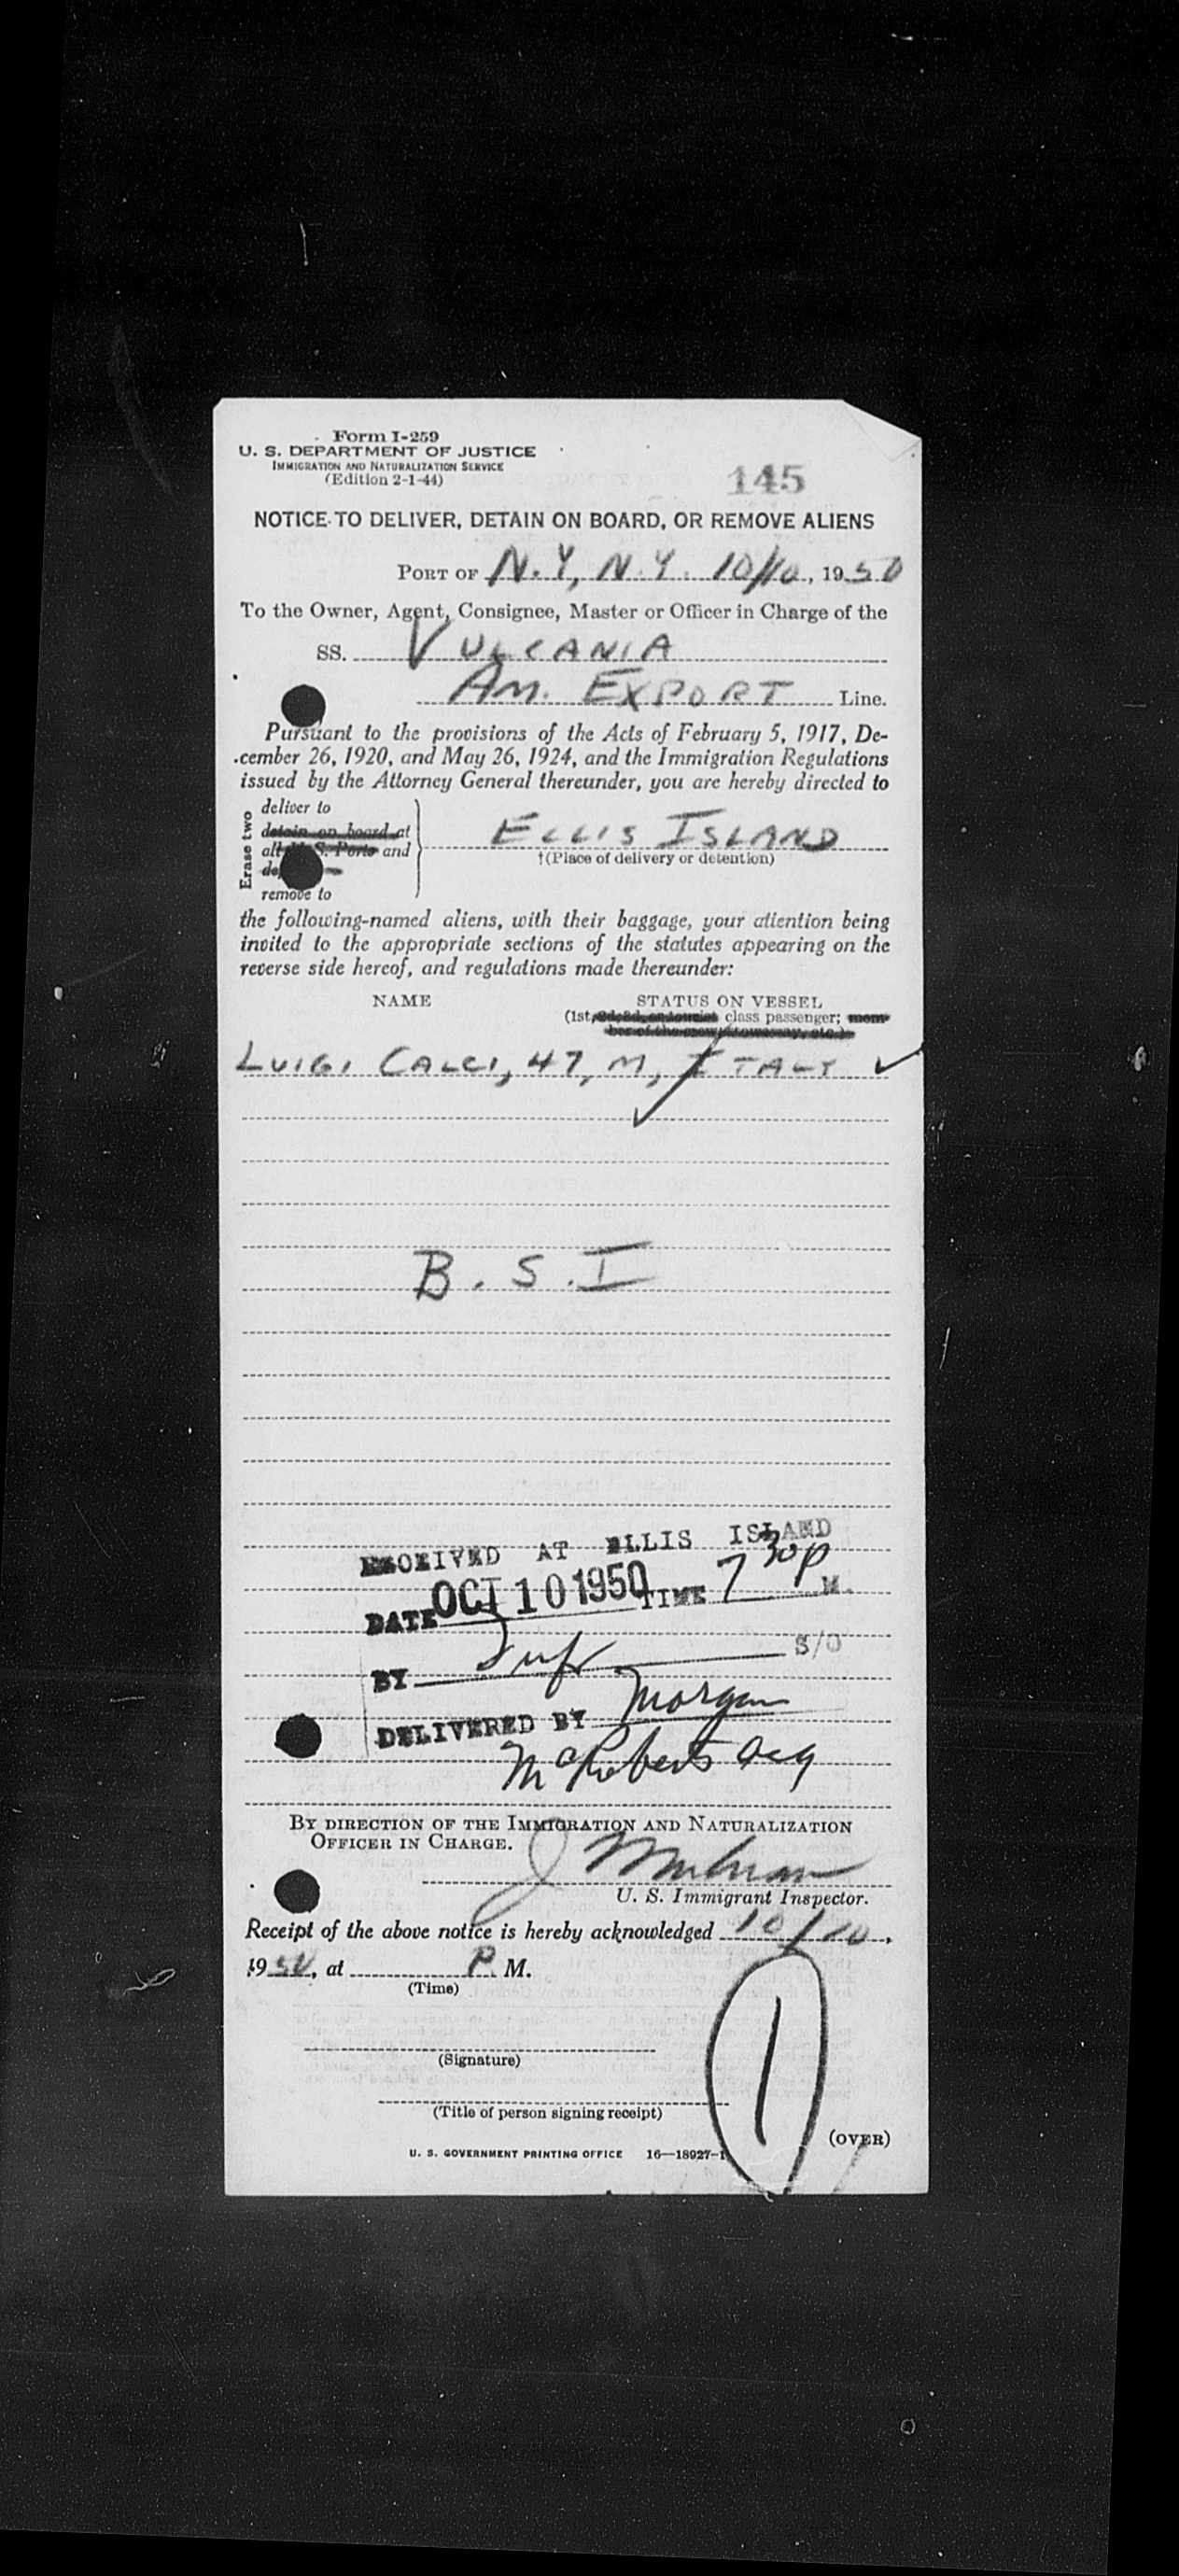 Form I-259
U. S. DEPARTMENT OF JUSTICE
IMMIGRATION AND NATURALIZATION SERVICE
(Edition 2-1-44)
145
NOTICE TO DELIVER, DETAIN ON BOARD, OR REMOVE ALIENS
PORT OF N.Y, N.Y. 10/10, 1950
To the Owner, Agent, Consignee, Master or Officer in Charge of the
SS. VULCANIA
AM. EXPORT Line.
Pursuant to the provisions of the Acts of February 5, 1917, De-
cember 26, 1920, and May 26, 1924, and the Immigration Regulations
issued by the Attorney General thereunder, you are hereby directed to
Erase two
deliver to
detain on board at
all U. S. Ports and
remove to
ELLIS ISLAND
†(Place of delivery or detention)
the following-named aliens, with their baggage, your attention being
invited to the appropriate sections of the statutes appearing on the
reverse side hereof, and regulations made thereunder:
NAME STATUS ON VESSEL
(1st, 2d, 3d, or tourist class passenger; mem-
ber of the crew, stowaway, etc.)
LUIGI CALCI, 47, M, ITALY
B.S.I
RECEIVED AT ELLIS ISLAND
DATE OCT 10 1950 TIME 7 30 P M.
BY S/O
DELIVERED BY Morgan
McRoberts
BY DIRECTION OF THE IMMIGRATION AND NATURALIZATION
OFFICER IN CHARGE.
U. S. Immigrant Inspector.
Receipt of the above notice is hereby acknowledged 10/10,
1950, at P. M.
(Time)
(Signature)
(Title of person signing receipt)
1
(OVER)
U. S. GOVERNMENT PRINTING OFFICE 16—18927-1